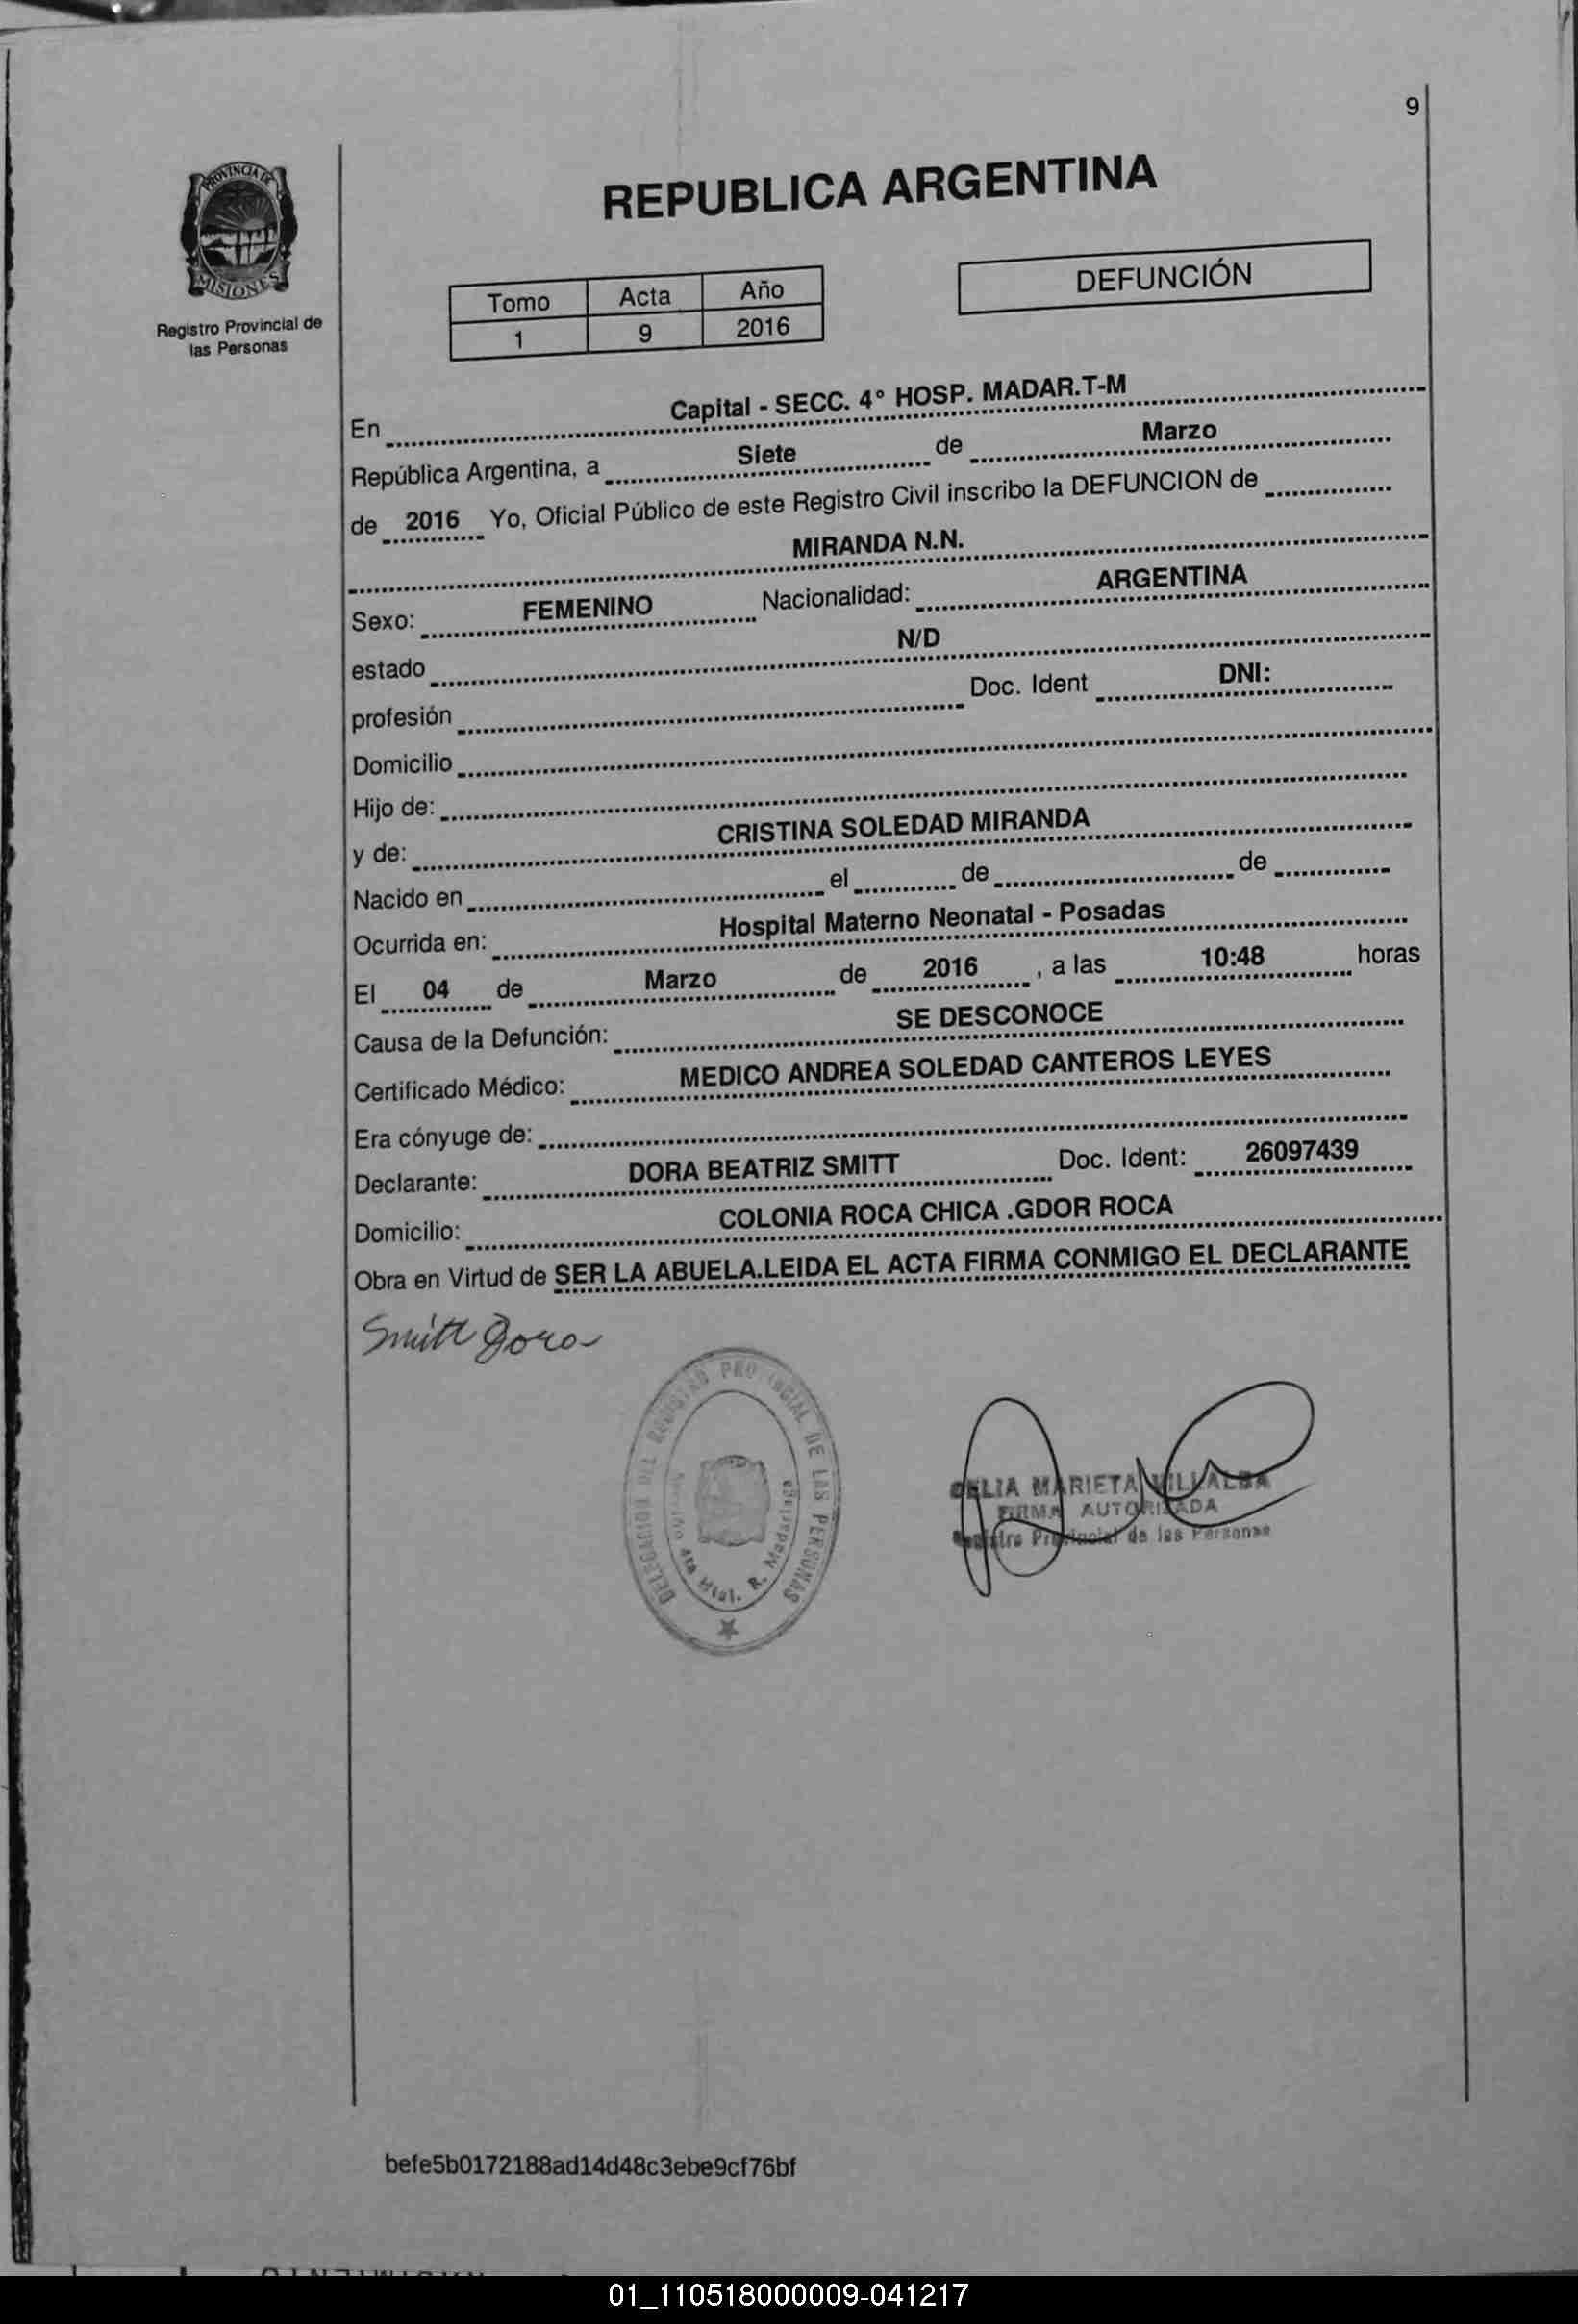 9
PROVINCIA DE
MISIONES
Registro Provincial de
las Personas
REPUBLICA ARGENTINA
Tomo Acta Año
1 9 2016
DEFUNCIÓN
En Capital - SECC. 4° HOSP. MADAR.T-M
República Argentina, a Siete de Marzo
de 2016 Yo, Oficial Público de este Registro Civil inscribo la DEFUNCION de
MIRANDA N.N.
Sexo: FEMENINO Nacionalidad: ARGENTINA
estado N/D
profesión Doc. Ident DNI:
Domicilio
Hijo de:
y de: CRISTINA SOLEDAD MIRANDA
Nacido en el de de
Ocurrida en: Hospital Materno Neonatal - Posadas
El 04 de Marzo de 2016 , a las 10:48 horas
Causa de la Defunción: SE DESCONOCE
Certificado Médico: MEDICO ANDREA SOLEDAD CANTEROS LEYES
Era cónyuge de:
Declarante: DORA BEATRIZ SMITT Doc. Ident: 26097439
Domicilio: COLONIA ROCA CHICA .GDOR ROCA
Obra en Virtud de SER LA ABUELA.LEIDA EL ACTA FIRMA CONMIGO EL DECLARANTE
Smitt Dora
DELEGACION DEL REGISTRO PROVINCIAL DE LAS PERSONAS
4ta Htal. R. Madariaga
DELIA MARIETA VILLALBA
FIRMA AUTORIZADA
Registro Provincial de las Personas
befe5b0172188ad14d48c3ebe9cf76bf
01_110518000009-041217